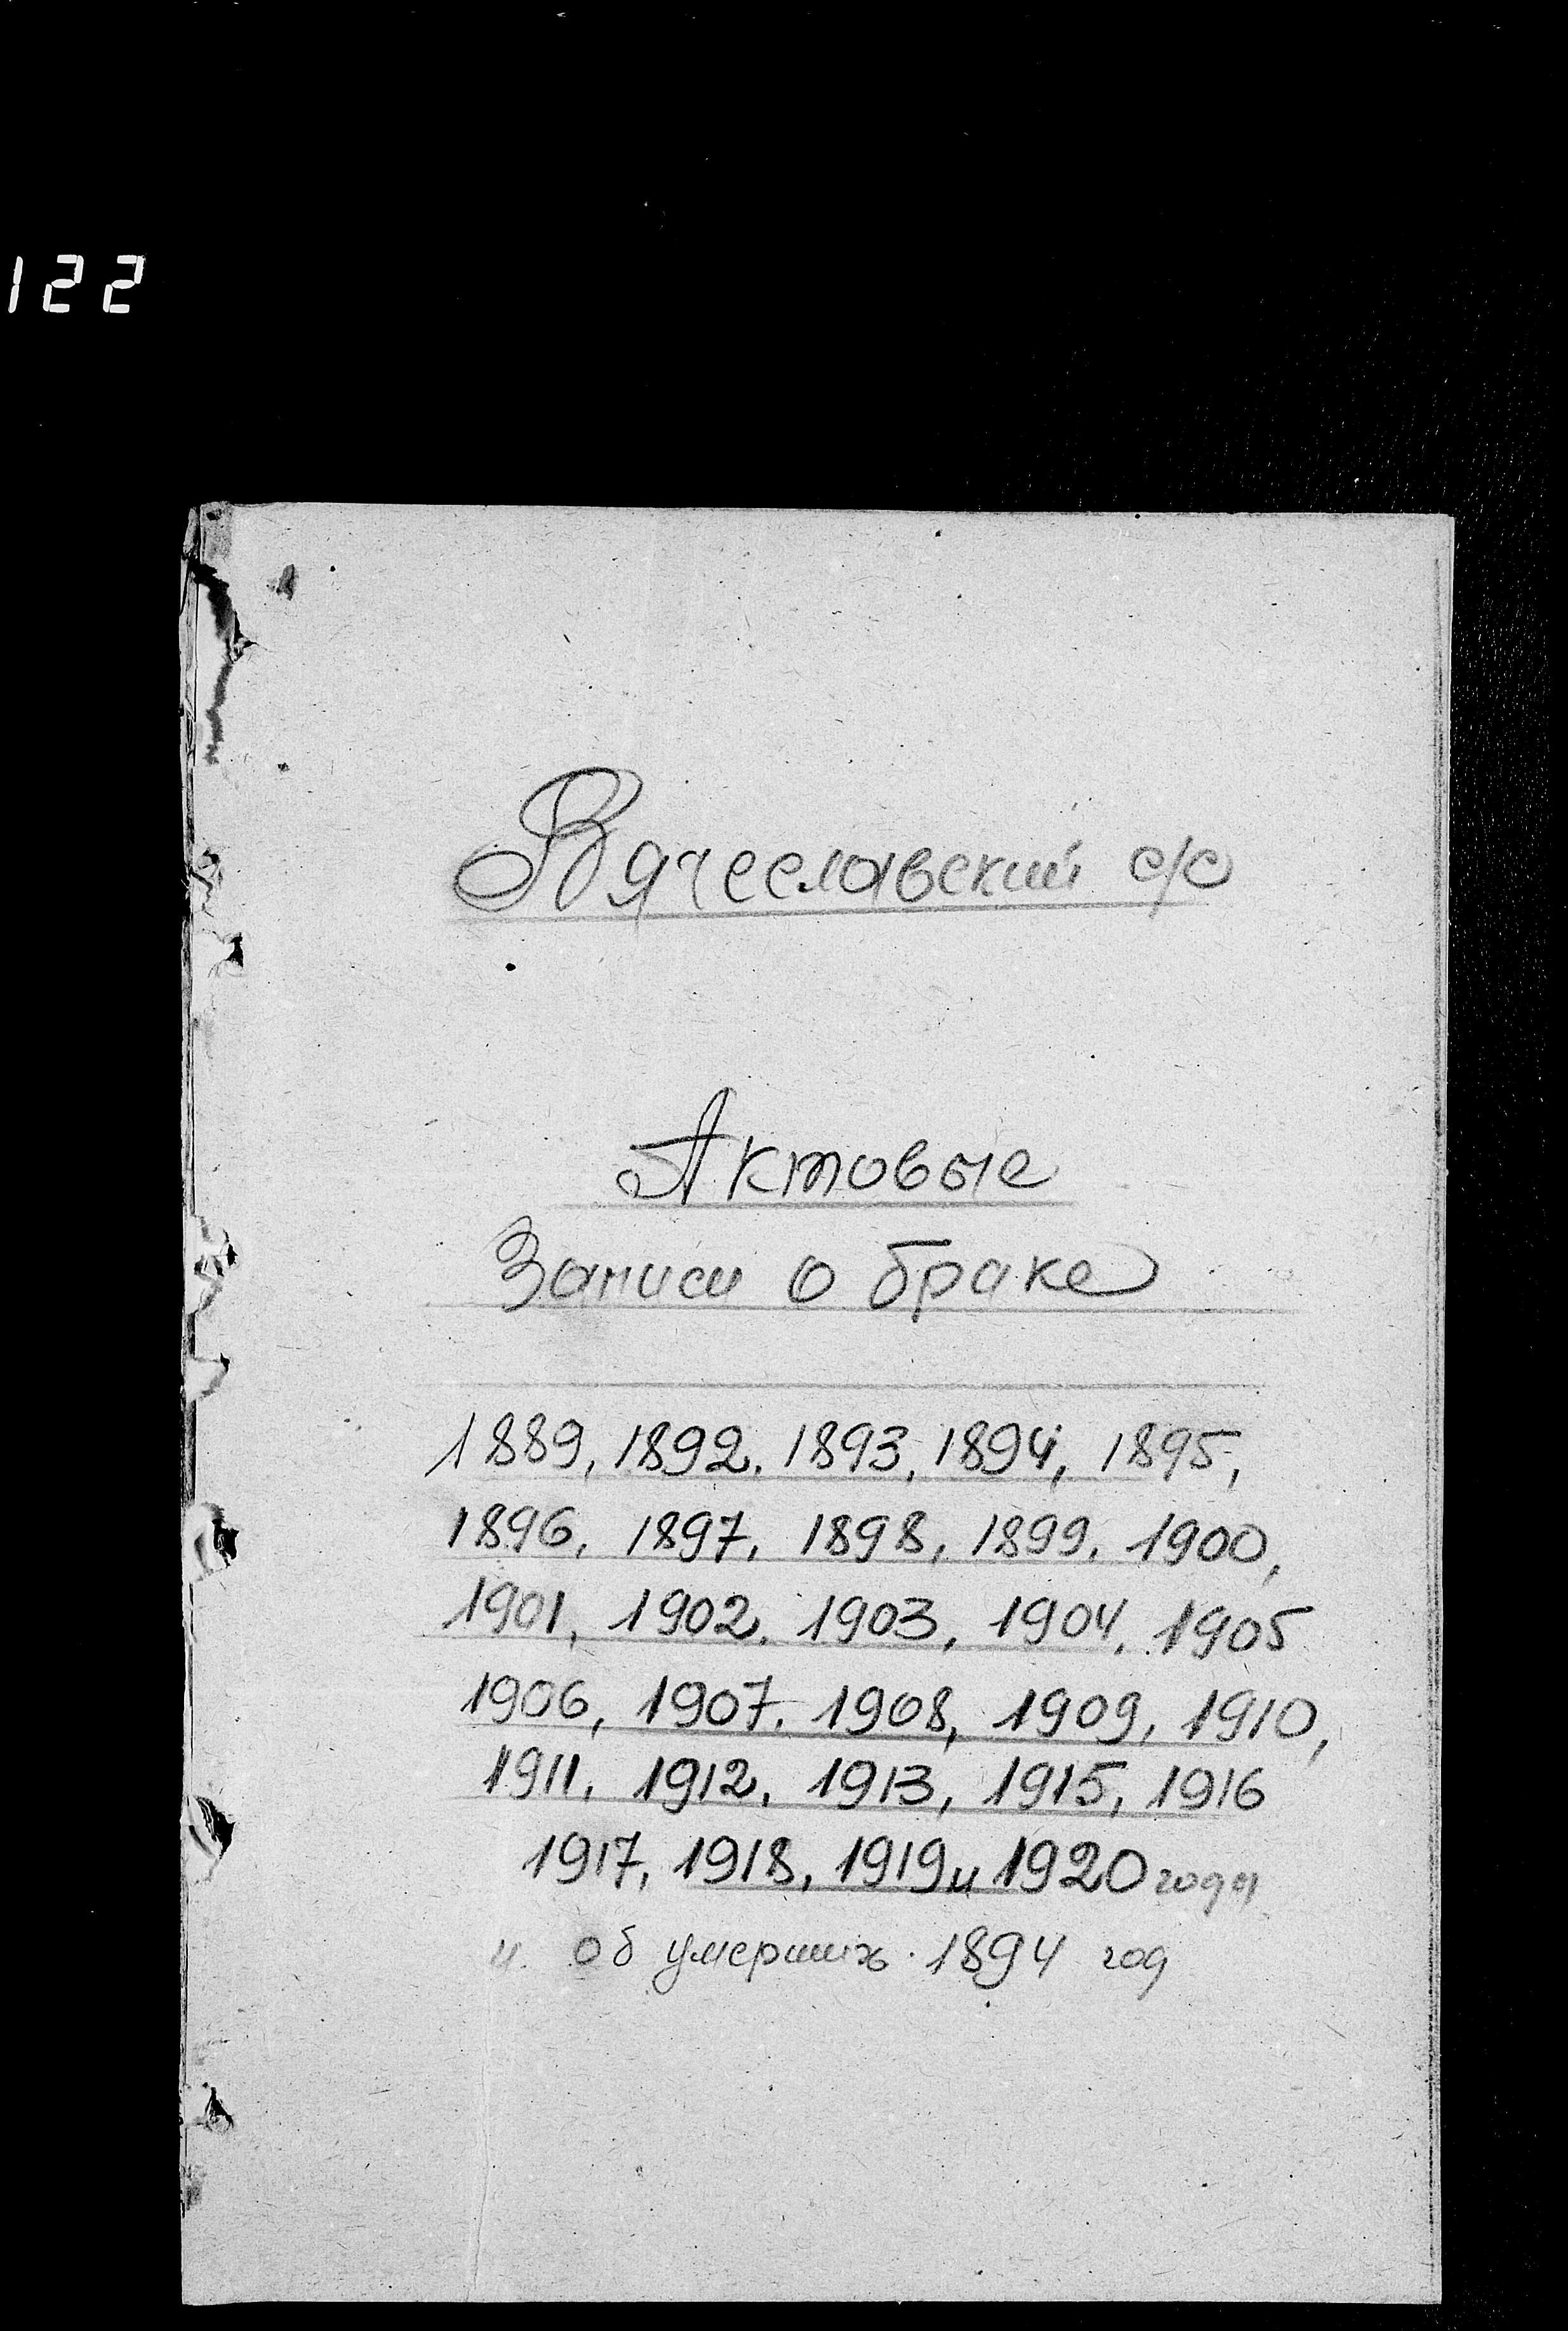 122
Вячеславский с/с
Актовые
Записи о браке
1889, 1892, 1893, 1894, 1895,
1896, 1897, 1898, 1899, 1900,
1901, 1902, 1903, 1904, 1905
1906, 1907, 1908, 1909, 1910,
1911, 1912, 1913, 1915, 1916
1917, 1918, 1919 и 1920 годы
и об умерших 1894 год